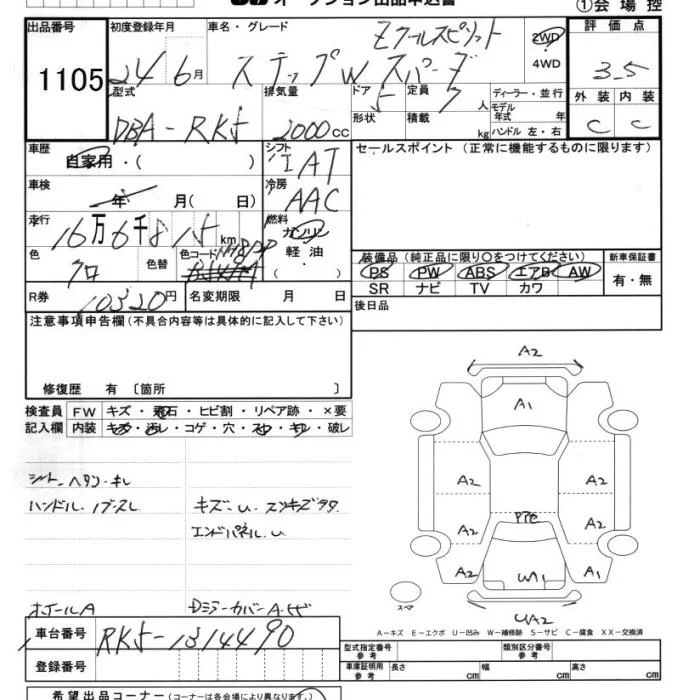 オークション出品申込書
①会場控
出品番号 初度登録年月 車名・グレード 2WD 評価点
Zクールスピリット
1105 24 6月 ステップW スパーダ 4WD 3.5
型式 排気量 ドア 定員 ディーラー・並行 外装 内装
DBA-RK5 2000cc 5 7人 モデル年式 年式
形状 積載 kg ハンドル 左・右 C C
車歴 自家用・( ) シフト IAT セールスポイント (正常に機能するものに限ります)
車検 年 月( 日) 冷房 AAC
走行 16万6千815km 燃料 ガソリン
色 クロ 色替 色コード NH8PP 軽油 ( )
装備品(純正品に限り○をつけてください) 新車保証書
PS PW ABS エアB AW 有・無
SR ナビ TV カワ
R券 10320円 名変期限 月 日 後日品
注意事項申告欄(不具合内容等は具体的に記入して下さい)
修復歴 有〔箇所 〕
検査員 FW キズ・飛石・ヒビ割・リペア跡・×要
記入欄 内装 キズ・汚レ・コゲ・穴・スレ・キレ・破レ
シート ヘタリ・キレ
ハンドル・ノブスレ キズ~U・スリキズ
エンドパネル、U
ホイールA DミラーカバーA
A2
A1
A2 A2
PPE
A2 A2
A2 W1 A1
スペア
UA2
A-キズ E-エクボ U-凹み W-補修跡 S-サビ C-腐食 XX-交換済
車台番号 RK5-1314490
型式指定番号 参考 類別区分番号 参考
登録番号 車庫証明用 参考 長さ cm 幅 cm 高さ cm
希望出品コーナー(コーナーは各会場により異なります。)